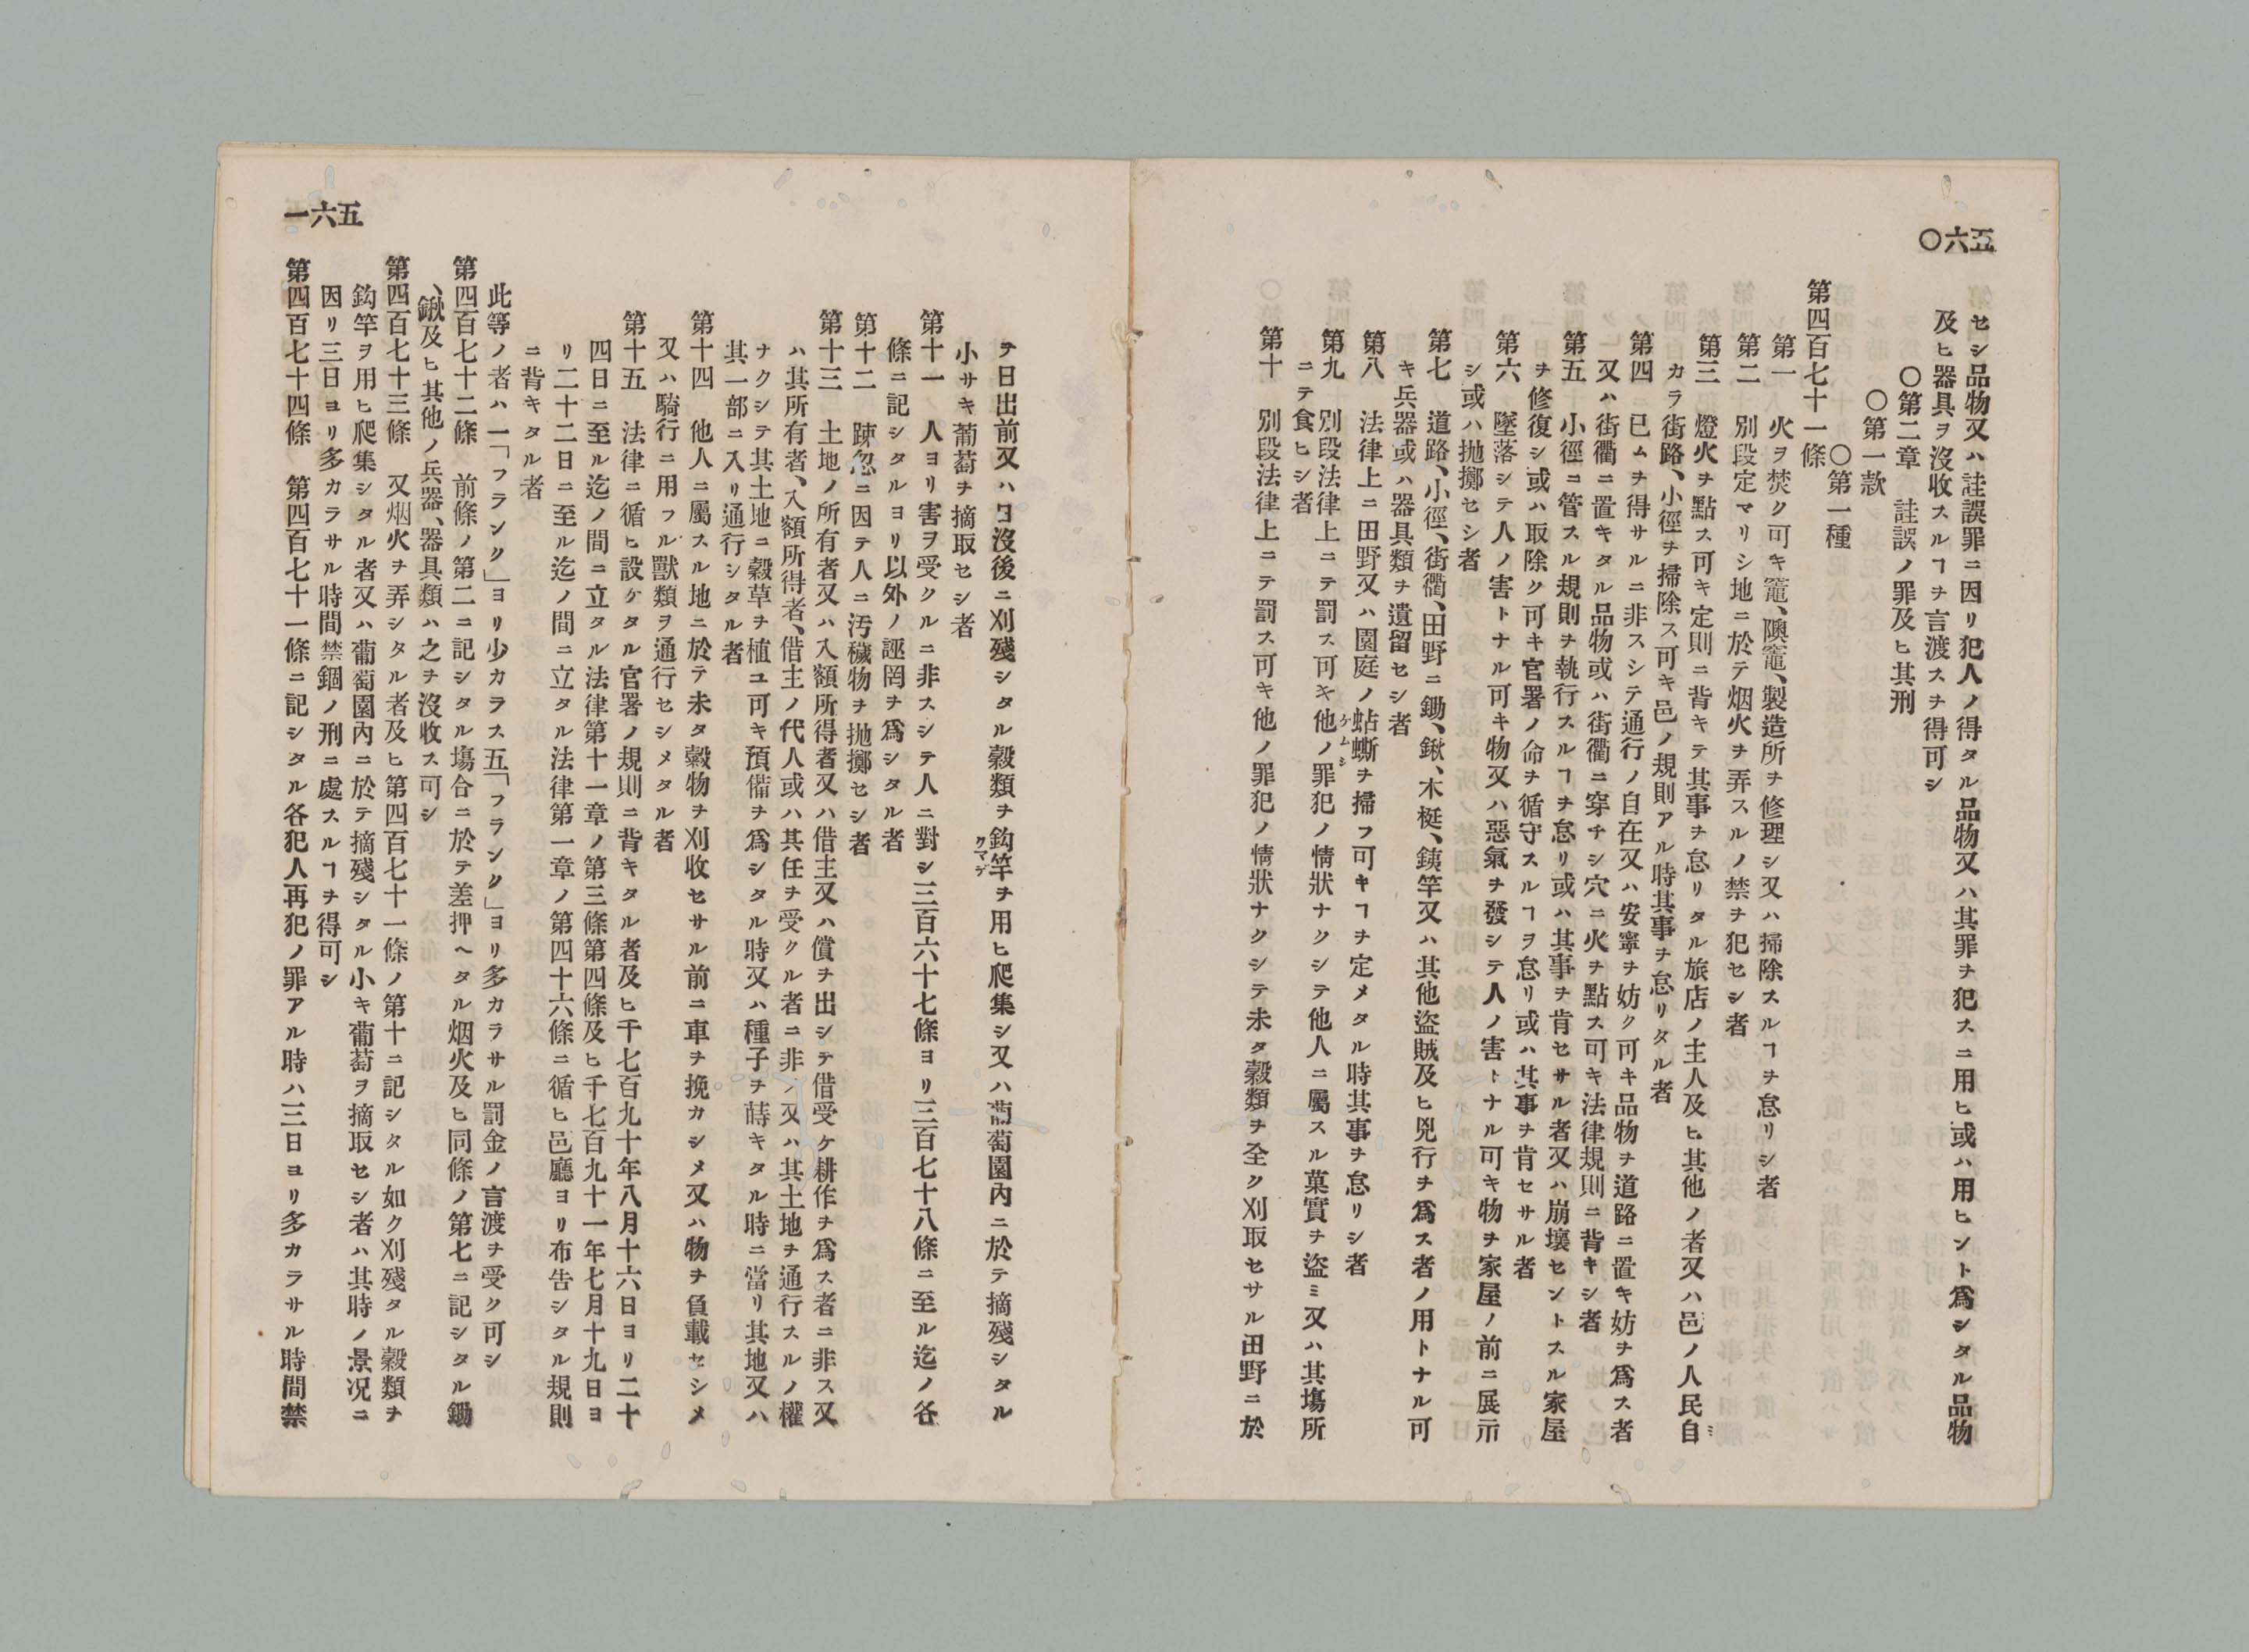 五六〇
セシ品物又ハ詿誤罪ニ因リ犯人ノ得タル品物又ハ其罪ヲ犯スニ用ヒ或ハ用ヒント爲シタル品物
及ヒ器具ヲ沒收スルヿヲ言渡スヲ得可シ
〇第二章 詿誤ノ罪及ヒ其刑
〇第一款
〇第一種
第四百七十一條
第一 火ヲ焚ク可キ竈、隩竈、製造所ヲ修理シ又ハ掃除スルヿヲ怠リシ者
第二 別段定マリシ地ニ於テ烟火ヲ弄スルノ禁ヲ犯セシ者
第三 燈火ヲ點ス可キ定則ニ背キテ其事ヲ怠リタル旅店ノ主人及ヒ其他ノ者又ハ邑ノ人民自ミ
カラ街路、小徑ヲ掃除ス可キ邑ノ規則アル時其事ヲ怠リタル者
第四 已ムヲ得サルニ非スシテ通行ノ自在又ハ安寧ヲ妨ク可キ品物ヲ道路ニ置キ妨ヲ爲ス者
又ハ街衢ニ置キタル品物或ハ街衢ニ穿チシ穴ニ火ヲ點ス可キ法律規則ニ背キシ者
第五 小徑ニ管スル規則ヲ執行スルヿヲ怠リ或ハ其事ヲ肯セサル者又ハ崩壞セントスル家屋
ヲ修復シ或ハ取除ク可キ官署ノ命ヲ循守スルヿヲ怠リ或ハ其事ヲ肯セサル者
第六 墜落シテ人ノ害トナル可キ物又ハ惡氣ヲ發シテ人ノ害トナル可キ物ヲ家屋ノ前ニ展示
シ或ハ抛擲セシ者
第七 道路、小徑、街衢、田野ニ鋤、鍬、木梃、銕竿又ハ其他盜賊及ヒ兇行ヲ爲ス者ノ用トナル可
キ兵器或ハ器具類ヲ遺留セシ者
第八 法律上ニ田野又ハ園庭ノ蛅蟖ヲ掃フ可キヿヲ定メタル時其事ヲ怠リシ者
ケムシ
第九 別段法律上ニテ罰ス可キ他ノ罪犯ノ情狀ナクシテ他人ニ屬スル菓實ヲ盜ミ又ハ其塲所
ニテ食ヒシ者
第十 別段法律上ニテ罰ス可キ他ノ罪犯ノ情狀ナクシテ未タ穀類ヲ全ク刈取セサル田野ニ於
五六一
テ日出前又ハ日沒後ニ刈殘シタル穀類ヲ鈎竿ヲ用ヒ爬集シ又ハ葡萄園內ニ於テ摘殘シタル
クマデ
小サキ葡萄ヲ摘取セシ者
第十一 人ヨリ害ヲ受クルニ非スシテ人ニ對シ三百六十七條ヨリ三百七十八條ニ至ル迄ノ各
條ニ記シタルヨリ以外ノ誣罔ヲ爲シタル者
第十二 踈忽ニ因テ人ニ汚穢物ヲ抛擲セシ者
第十三 土地ノ所有者又ハ入額所得者又ハ借主又ハ償ヲ出シテ借受ケ耕作ヲ爲ス者ニ非ス又
ハ其所有者、入額所得者、借主ノ代人或ハ其任ヲ受クル者ニ非ス又ハ其土地ヲ通行スルノ權
ナクシテ其土地ニ穀草ヲ植ユ可キ預備ヲ爲シタル時又ハ種子ヲ蒔キタル時ニ當リ其地又ハ
其一部ニ入リ通行シタル者
第十四 他人ニ屬スル地ニ於テ未タ穀物ヲ刈收セサル前ニ車ヲ挽カシメ又ハ物ヲ負載セシメ
又ハ騎行ニ用フル獸類ヲ通行セシメタル者
第十五 法律ニ循ヒ設ケタル官署ノ規則ニ背キタル者及ヒ千七百九十年八月十六日ヨリ二十
四日ニ至ル迄ノ間ニ立タル法律第十一章ノ第三條第四條及ヒ千七百九十一年七月十九日ヨ
リ二十二日ニ至ル迄ノ間ニ立タル法律第一章ノ第四十六條ニ循ヒ邑廳ヨリ布告シタル規則
ニ背キタル者
此等ノ者ハ一「フランク」ヨリ少カラス五「フランク」ヨリ多カラサル罰金ノ言渡ヲ受ク可シ
第四百七十二條 前條ノ第二ニ記シタル塲合ニ於テ差押ヘタル烟火及ヒ同條ノ第七ニ記シタル鋤
、鍬及ヒ其他ノ兵器、器具類ハ之ヲ沒收ス可シ
第四百七十三條 又烟火ヲ弄シタル者及ヒ第四百七十一條ノ第十ニ記シタル如ク刈殘タル穀類ヲ
鈎竿ヲ用ヒ爬集シタル者又ハ葡萄園內ニ於テ摘殘シタル小キ葡萄ヲ摘取セシ者ハ其時ノ景况ニ
因リ三日ヨリ多カラサル時間禁錮ノ刑ニ處スルヿヲ得可シ
第四百七十四條 第四百七十一條ニ記シタル各犯人再犯ノ罪アル時ハ三日ヨリ多カラサル時間禁